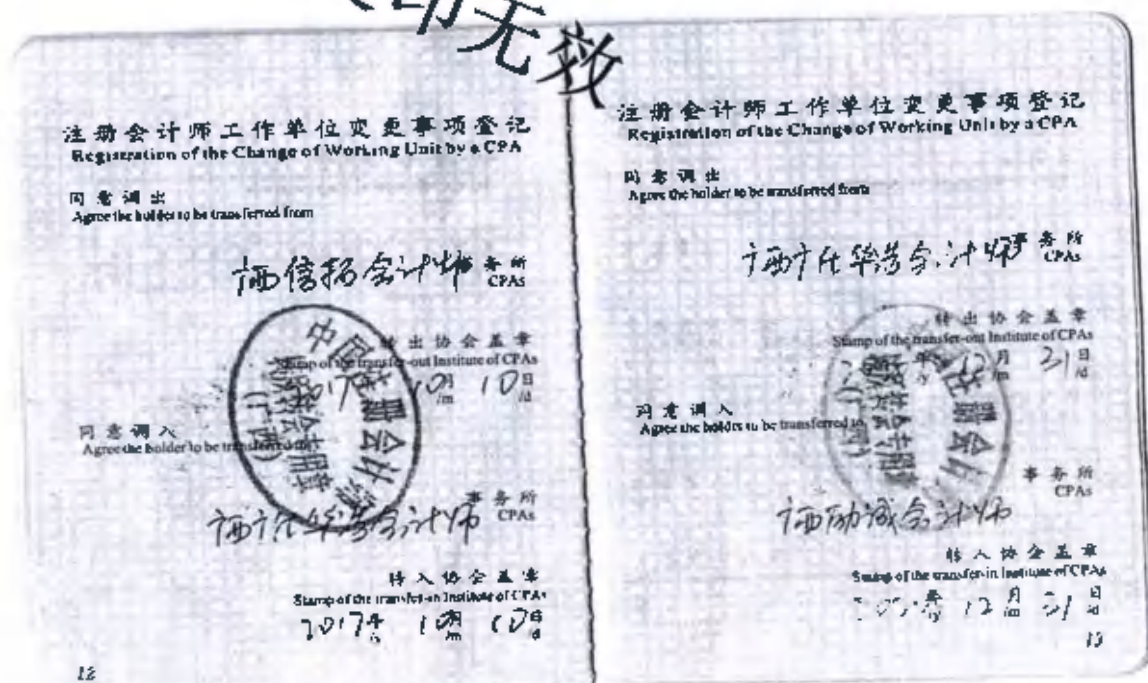 印无效
注册会计师工作单位变更事项登记
Registration of the Change of Working Unit by a CPA
同意调出
Agree the holder to be transferred from
广西信拓会计师事务所
CPAs
转出协会盖章
Stamp of the transfer-out Institute of CPAs
2017年 10月 10日
/y /m /d
同意调入
Agree the holder to be transferred to
会计师事务所
CPAs
转入协会盖章
Stamp of the transfer-in Institute of CPAs
2017年 10月 10日
/y /m /d
12
注册会计师工作单位变更事项登记
Registration of the Change of Working Unit by a CPA
同意调出
Agree the holder to be transferred from
会计师事务所
CPAs
转出协会盖章
Stamp of the transfer-out Institute of CPAs
年 12月 31日
/y /m /d
同意调入
Agree the holder to be transferred to
广西励诚会计师事务所
CPAs
转入协会盖章
Stamp of the transfer-in Institute of CPAs
年 12月 31日
/y /m /d
13